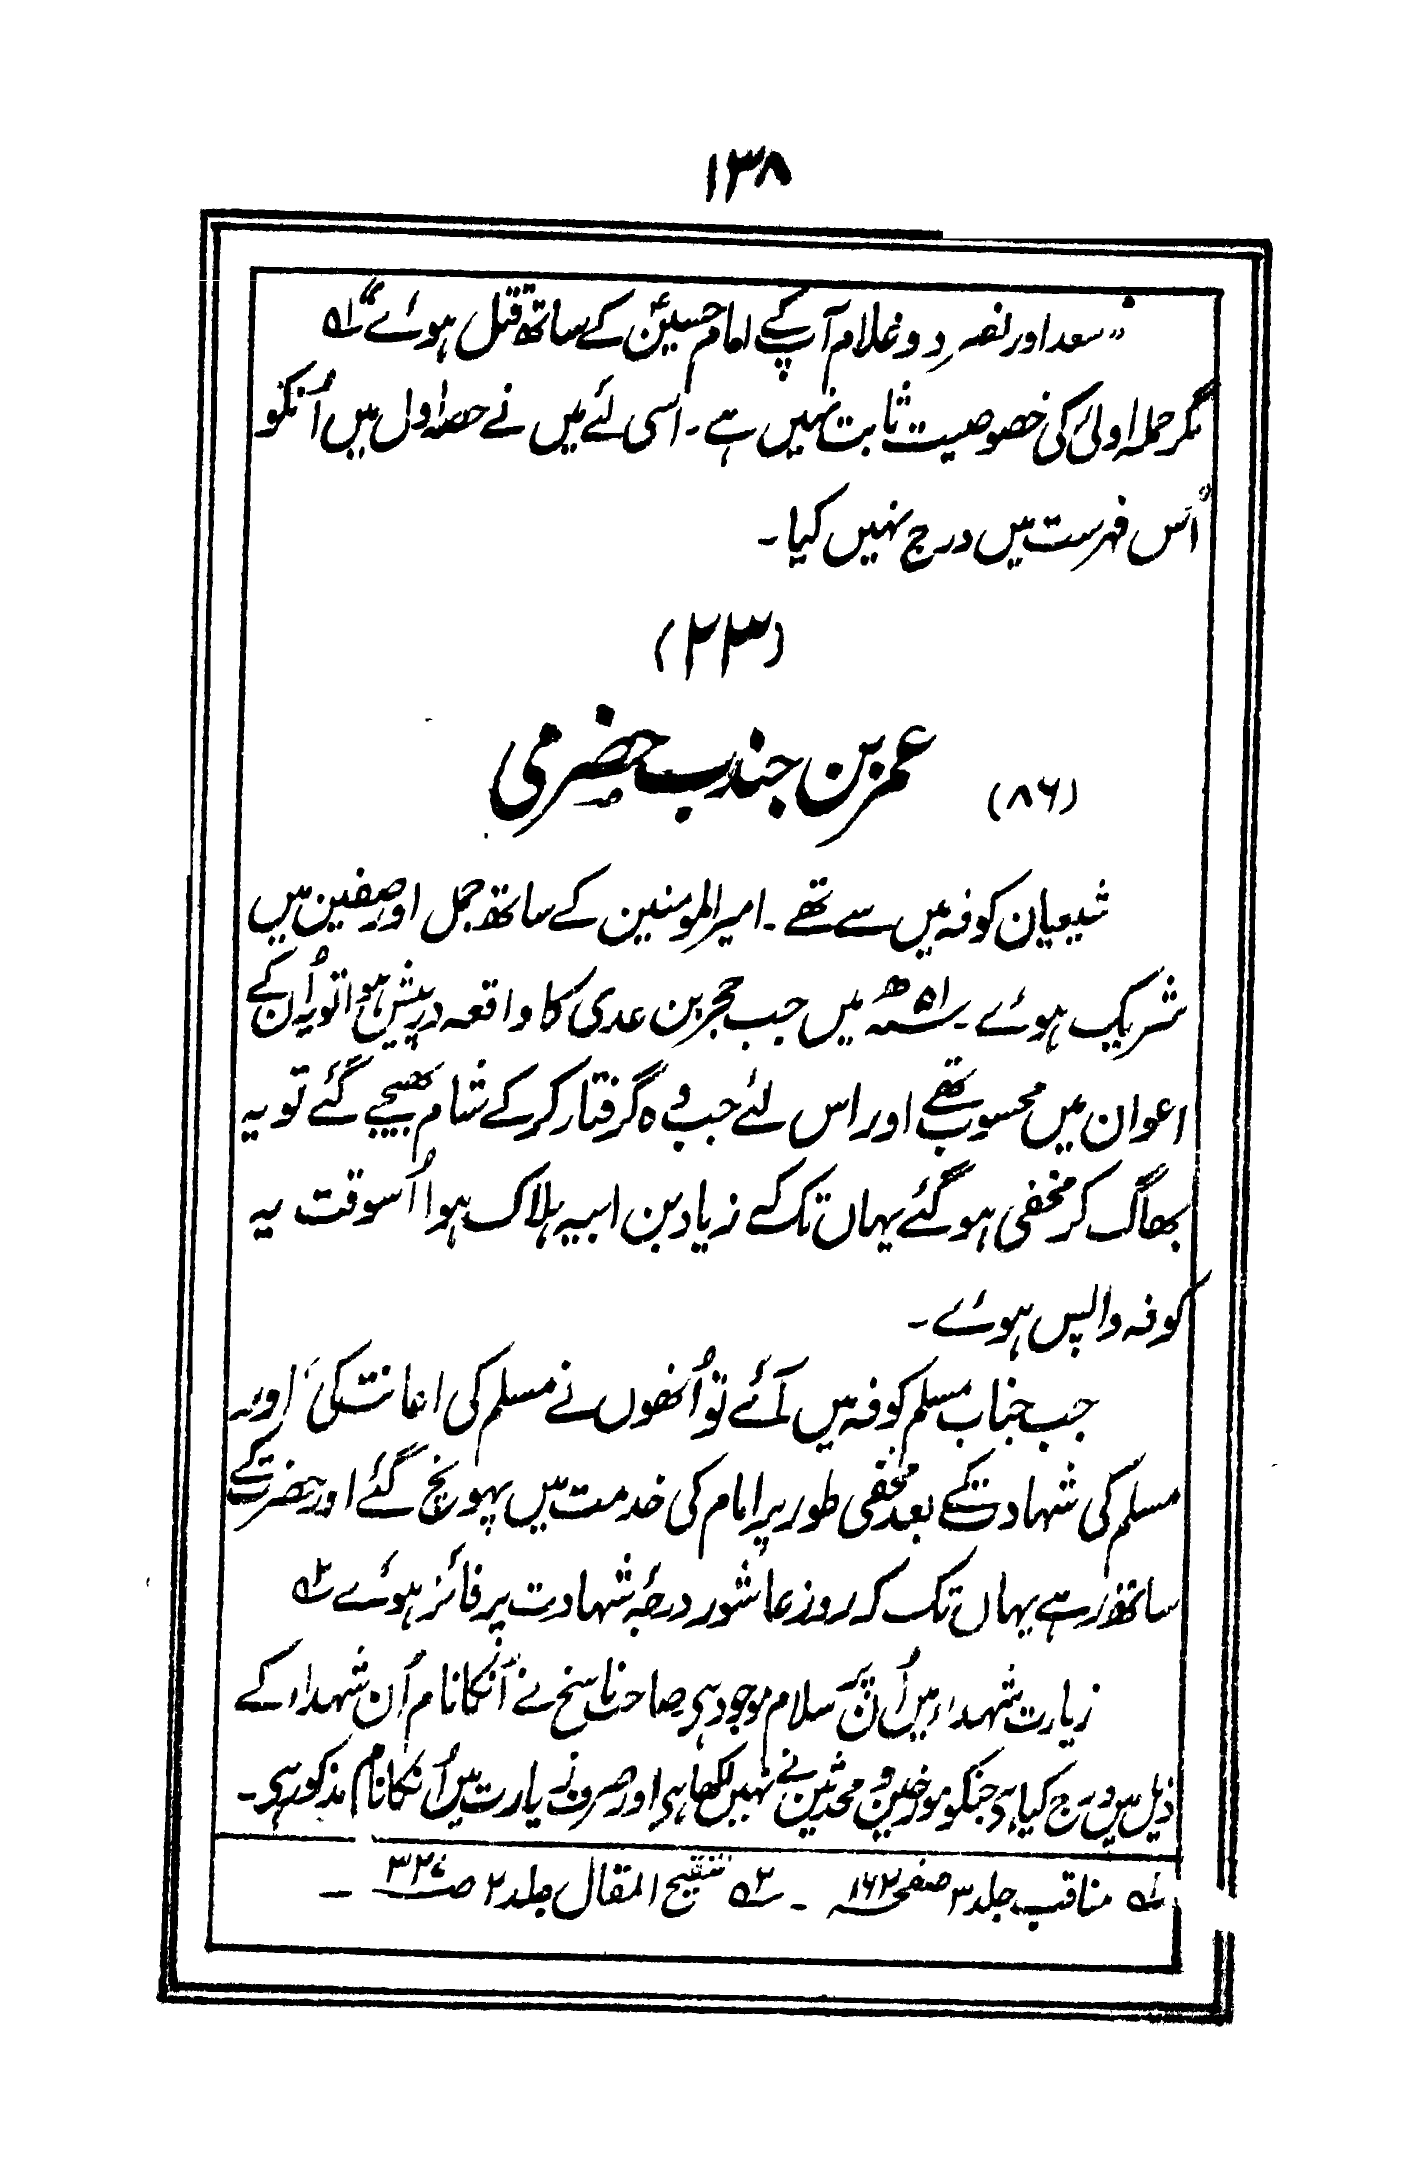 ۱۳۸
”سعد اور نصر دو غلام آپ کے امام حسینؑ کے ساتھ قتل ہوئے“ ؎۱
مگر حملہ اولیٰ کی خصوصیت ثابت نہیں ہے۔ اسی لئے میں نے حصہ اول میں اُنکو
اُس فہرست میں درج نہیں کیا۔
(۲۳)
(۸۶) عمر بن جندب حضرمی
شیعیان کوفہ میں سے تھے۔ امیرالمومنین کے ساتھ جمل اور صفین میں
شریک ہوئے۔ ۵۱ھ میں جب حجر بن عدی کا واقعہ درپیش ہوا تو یہ اُن کے
اعوان میں محسوب تھے اور اس لئے جب وہ گرفتار کرکے شام بھیجے گئے تو یہ
بھاگ کر مخفی ہوگئے یہاں تک کے زیاد بن ابیہ ہلاک ہوا اُسوقت یہ
کوفہ واپس ہوئے۔
جب جناب مسلم کوفہ میں آئے تو اُنھوں نے مسلم کی اعانت کی اور
مسلم کی شہادت کے بعد مخفی طور پر امام کی خدمت میں پہونچ گئے اور حضرت کے
ساتھ رہے یہاں تک کہ روز عاشور درجۂ شہادت پر فائز ہوئے ؎۲
زیارت شہداء میں اُن پر سلام موجود ہی صاحب ناسخ نے اُنکا نام اُن شہداء کے
ذیل میں درج کیا ہی جنکو مورخین و محدثین نے نہیں لکھا ہی اور صرف زیارت میں اُنکا نام مذکور ہی۔
؎۱ مناقب جلد ۳ صفحہ ۱۶۲ ۔ ؎۲ تنقیح المقال جلد ۲ ص۳۲۷ ۔